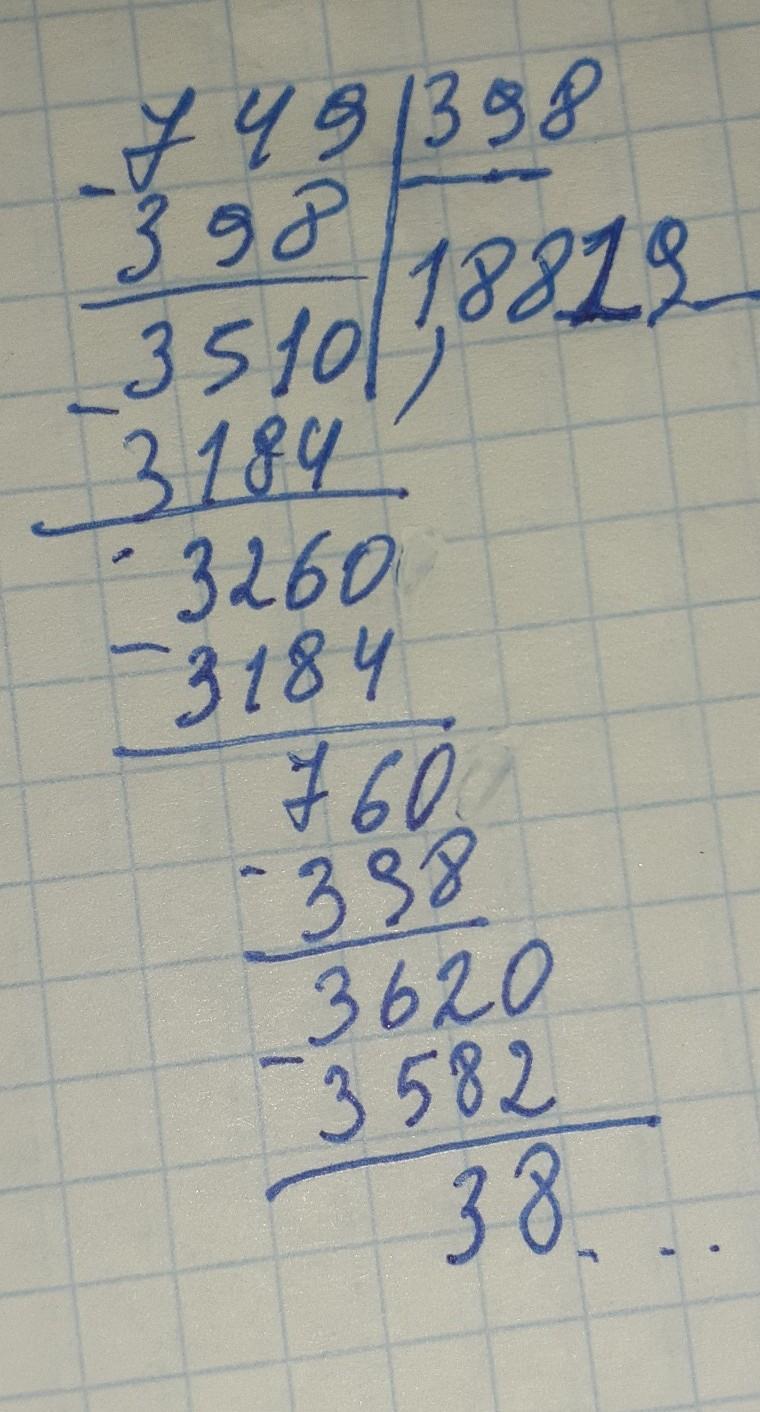 - 749 | 398
398
1,8819
3510
- 3184
3260
- 3184
760
- 398
3620
- 3582
38...